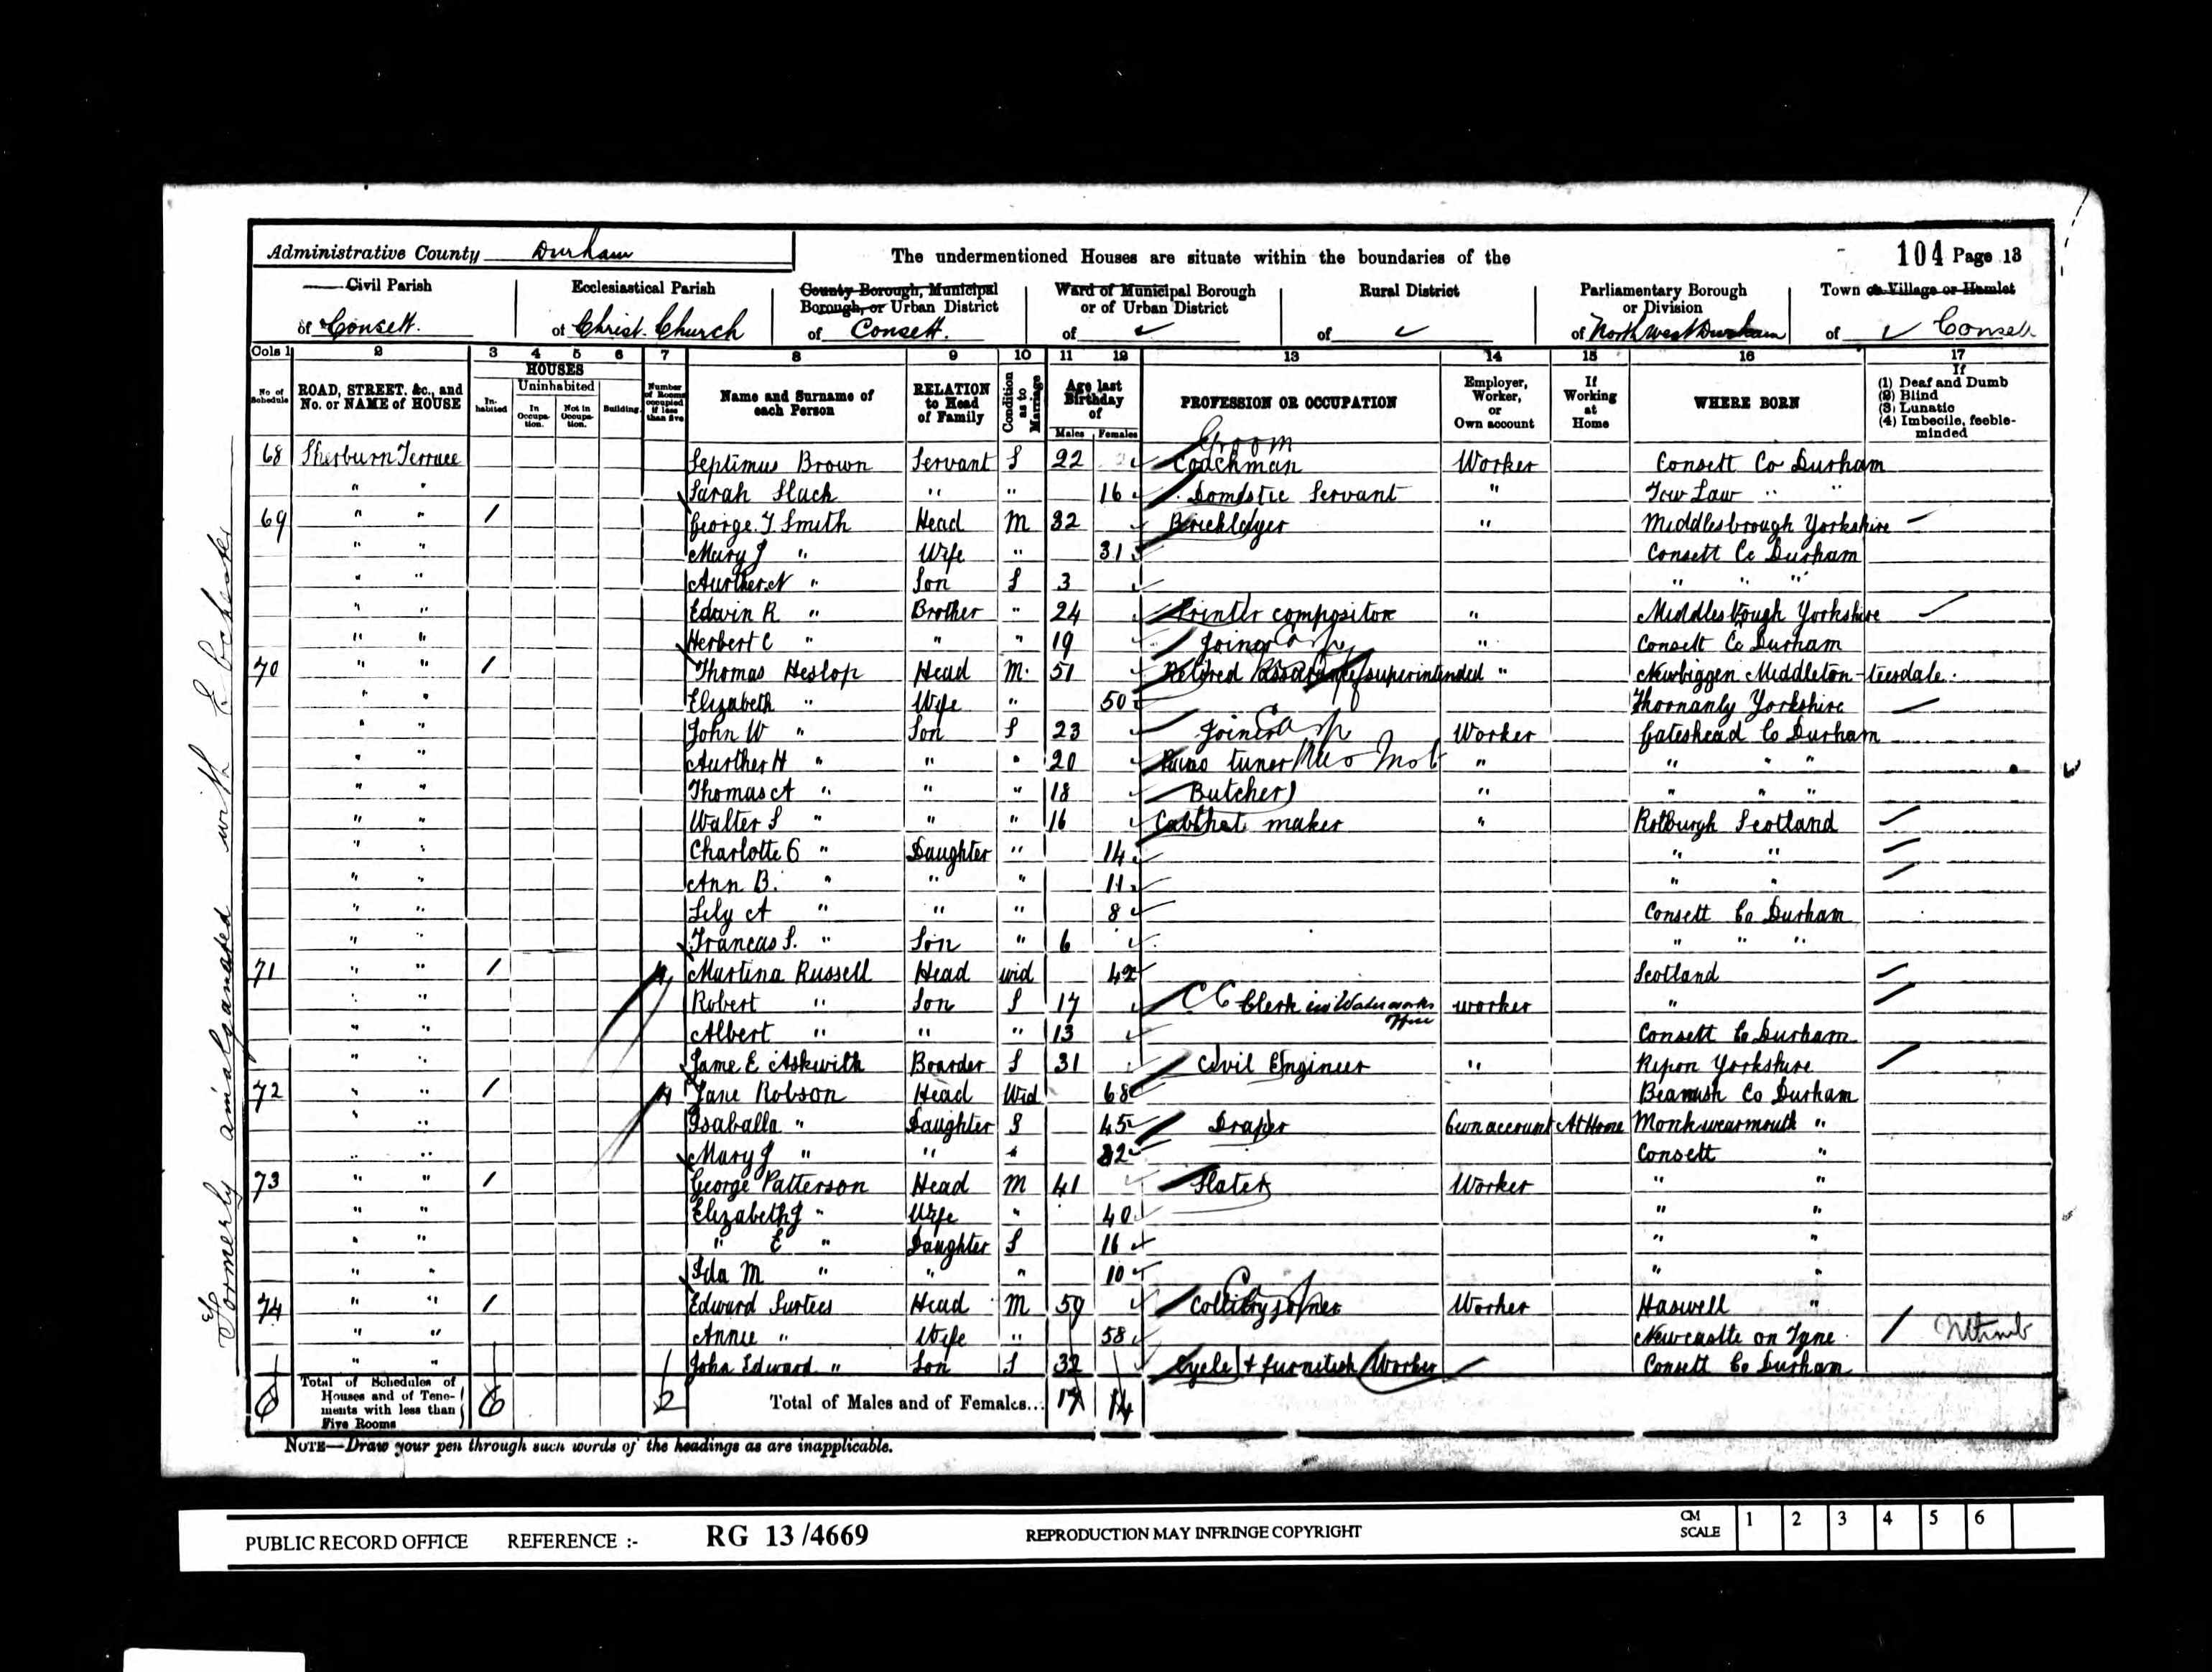 Administrative County Durham
The undermentioned Houses are situate within the boundaries of the
104 Page 13
Civil Parish
of Consett.
Ecclesiastical Parish
of Christ Church
County Borough, Municipal Borough, or Urban District
of Consett.
Ward of Municipal Borough or of Urban District
of
Rural District
of
Parliamentary Borough or Division
of North West Durham
Town or Village or Hamlet
of Consett
Cols 1 2 3 4 5 6 7 8 9 10 11 12 13 14 15 16 17
No. of Schedule
ROAD, STREET, &c., and No. or NAME of HOUSE
HOUSES
Inhabited
Uninhabited
In Occupation.
Not in Occupation.
Building.
Number of Rooms occupied if less than five
Name and Surname of each Person
RELATION to Head of Family
Condition as to Marriage
Age last Birthday of
Males Females
PROFESSION OR OCCUPATION
Employer, Worker, or Own account
If Working at Home
WHERE BORN
If
(1) Deaf and Dumb
(2) Blind
(3) Lunatic
(4) Imbecile, feeble-minded
Groom
68 Sherburn Terrace Septimus Brown Servant S 22 Coachman Worker Consett Co Durham
" " Sarah Slack " " 16 Domistic Servant " Tow Law " "
69 " " 1 George T Smith Head M 32 Bricklayer " Middlesbrough Yorkshire
" " Mary J " Wife " 31 Consett Co Durham
" " Aurther N " Son S 3 " " "
" " Edwin R " Brother " 24 Printer compositor " Middlesbrough Yorkshire
" " Herbert C " " " 19 Joiner " Consett Co Durham
70 " " 1 Thomas Heslop Head M. 51 superintended " Newbiggen Middleton-teesdale.
" " Elizabeth " Wife " 50 Thornanly Yorkshire
" " John W " Son S 23 Joiner Worker Gateshead Co Durham
" " Aurther H " " " 20 Piano tuner " " " "
" " Thomas A " " " 18 Butcher " " " "
" " Walter S " " " 16 Cabthet maker " Rotburgh Scotland
" " Charlotte E " Daughter " 14 " "
" " Ann B. " " " 11 " "
" " Lily A " " " 8 Consett Co Durham
" " Francas S. " Son " 6 " " "
71 " " 1 4 Martina Russell Head wid 42 Scotland
" " Robert " Son S 17 Clerk in Waterworks Office worker "
" " Albert " " " 13 Consett Co Durham
" " Jame E Askwith Boarder S 31 Civil Engineer " Ripon Yorkshire
72 " " 1 4 Jane Robson Head Wid 68 Beamish Co Durham
" " Isaballa " Daughter S 45 Draper Own account At Home Monkwearmouth "
" " Mary J " " " 32 Consett "
73 " " 1 George Patterson Head M 41 Slater Worker " "
" " Elizabeth J " Wife " 40 " "
" " " E " Daughter S 16 " "
" " Ida M " " " 10 " "
74 " " 1 Edward Surtees Head M 59 Colliery joiner Worker Haswell "
" " Annie " Wife " 58 Newcastle on Tyne
" " John Edward " Son S 32 Cycle & furnitish Worker Consett Co Durham
6 Total of Schedules of Houses and of Tenements with less than Five Rooms 6 2 Total of Males and of Females... 17 14
NOTE—Draw your pen through such words of the headings as are inapplicable.
Formerly amalgamated with
PUBLIC RECORD OFFICE REFERENCE :- RG 13 /4669 REPRODUCTION MAY INFRINGE COPYRIGHT
CM SCALE 1 2 3 4 5 6